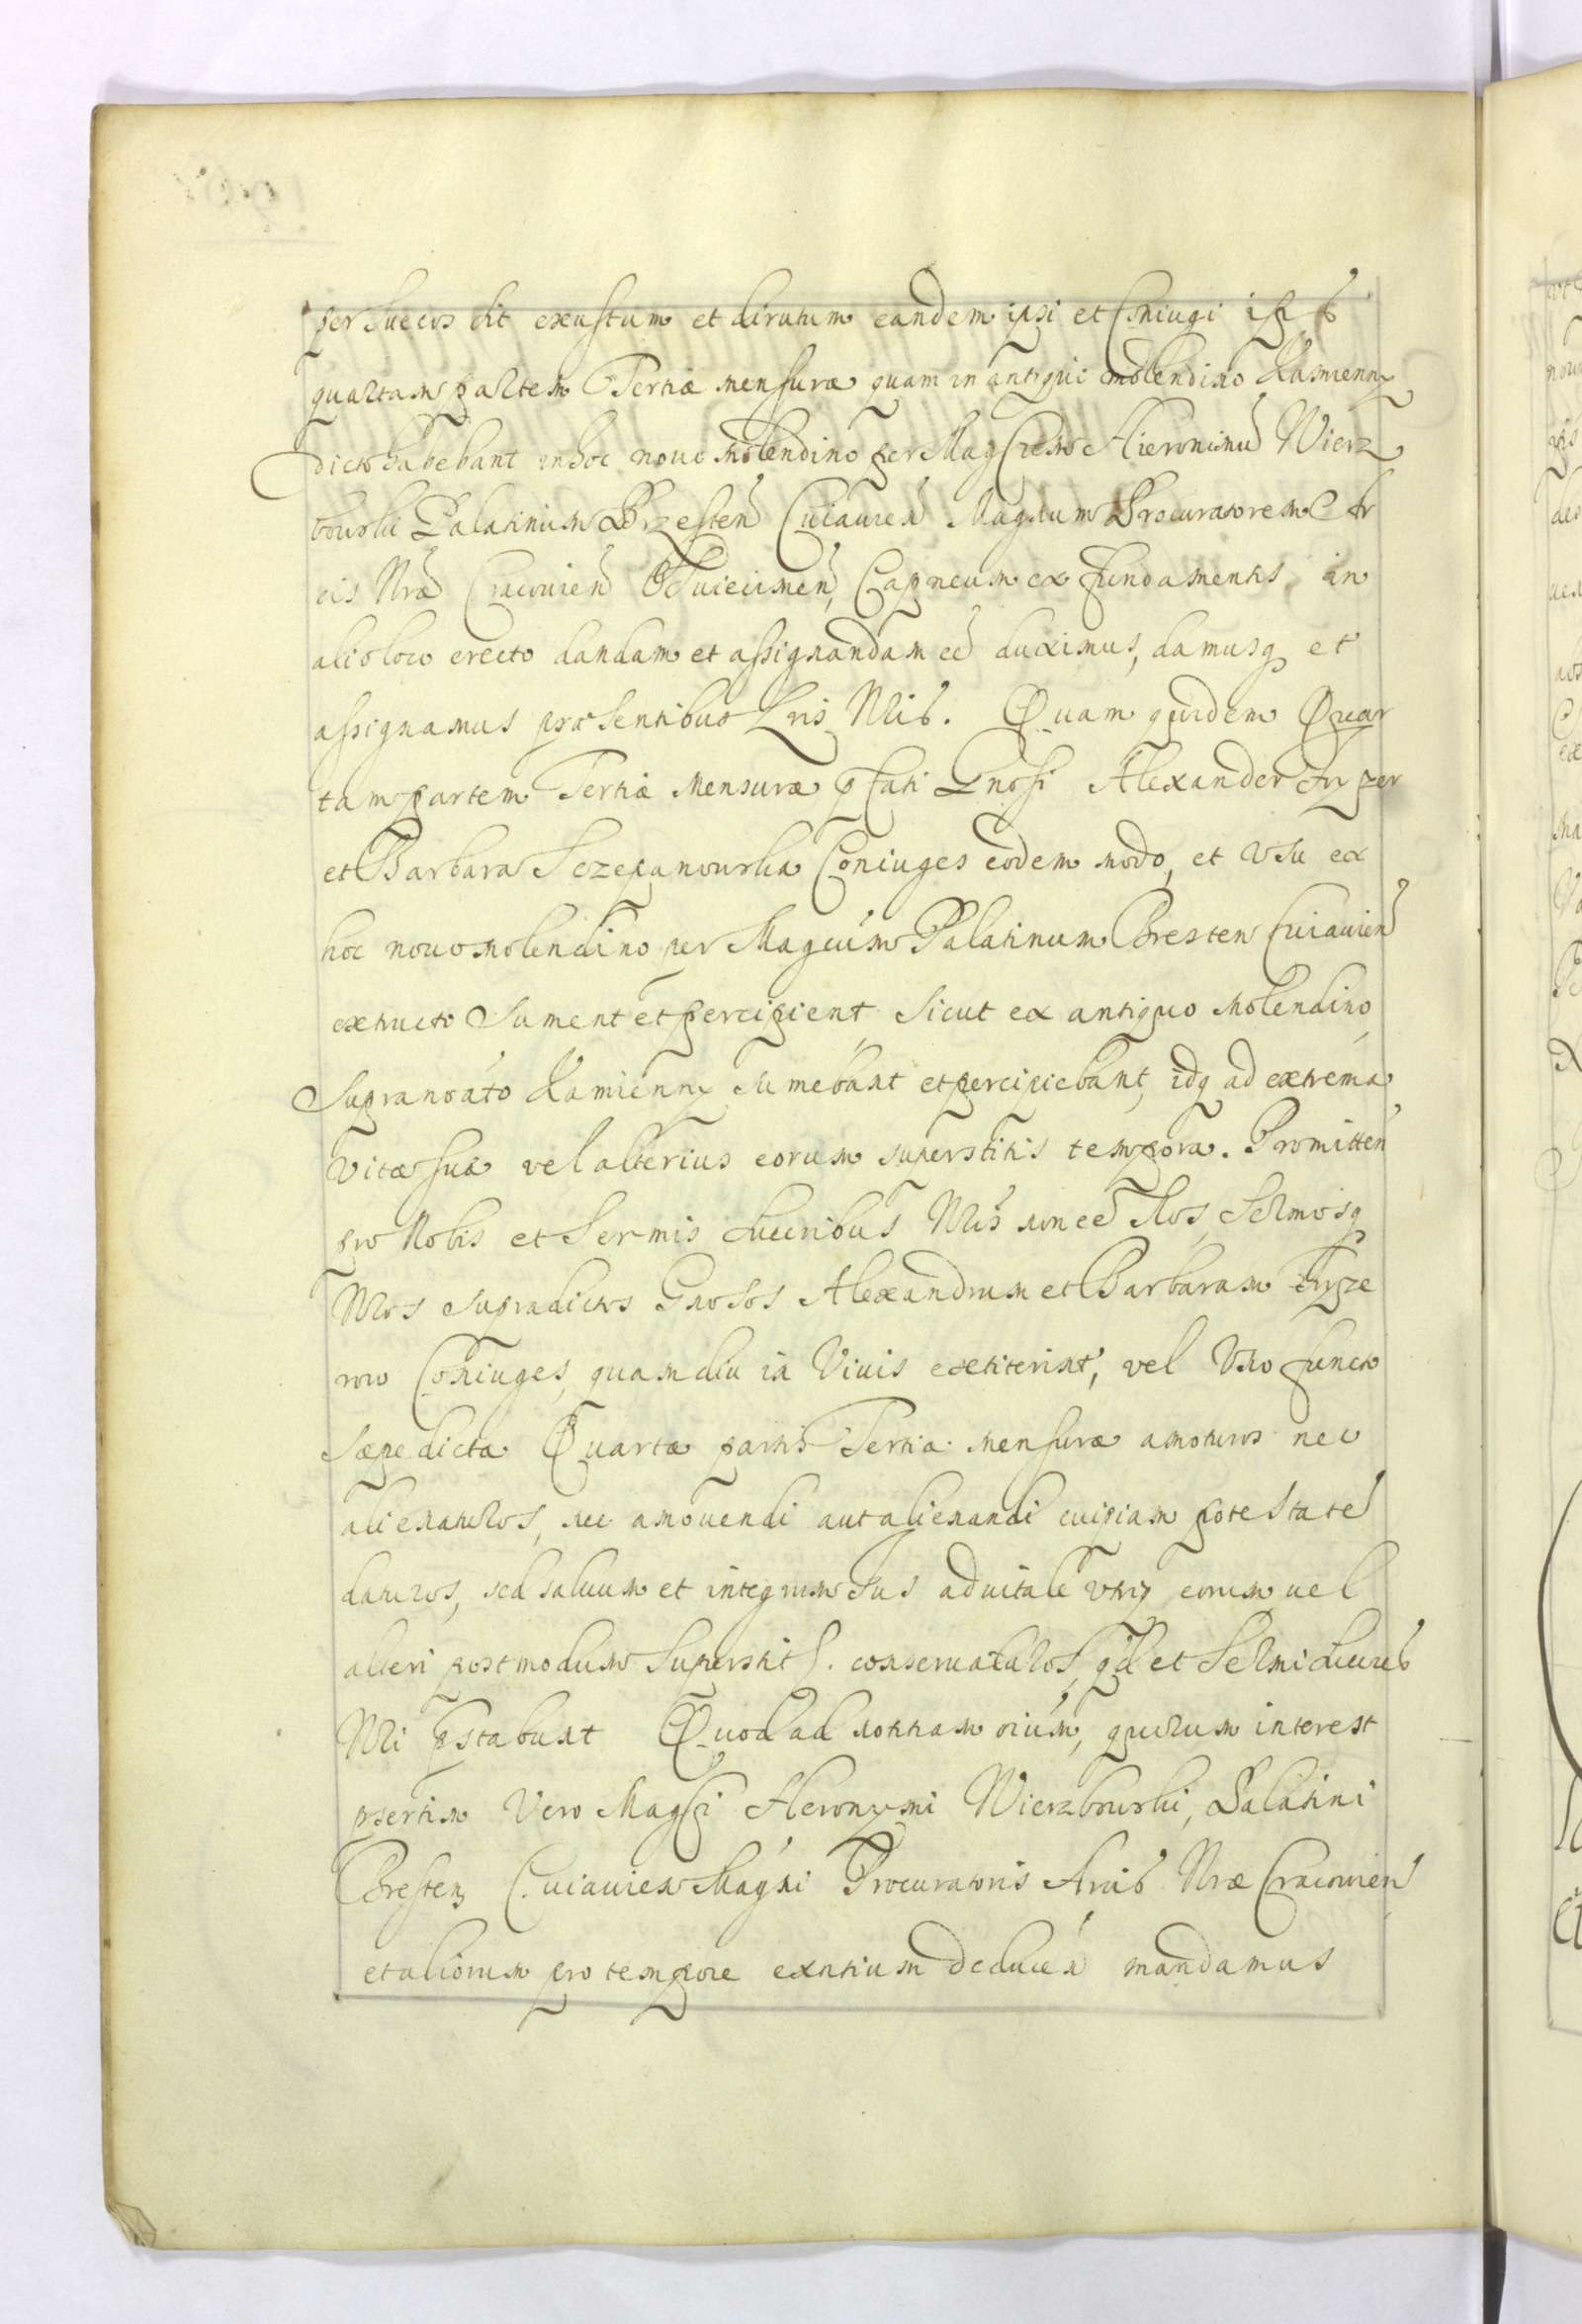 per Suecos sit exustum et dirutum eandem ipsi et Coniugi ipsi9
quartam partem Tertiæ mensuræ quam in antiqui molendino Kamienny
dicto habebant in hoc nouo molendino per Magcum Hieronimu Wierz
bowski Palatinum Brzesten Cuiauien Magnum Procuratorem Ar
cis Nræ Cracouien Osuiecimen, Capneum ex fundamentis in
alio loco erecto dandam et assignandam eē duximus, damusq et
assignamus præsentibus Lris Nris. Quam quidem Quar
tam partem Tertiæ Mensuræ pfati Gnosi Alexander Fryzer
et Barbara Sczepanowska Coniuges eodem modo, et vsu ex
hoc nouo molendino per Magcum Palatinum Bresten Cuiauien
extructo sument et percipient sicut ex antiquo Molendino
supranoāto Kamienny sumebant et percipiebant, idq ad extrema
Vitæ suæ vel alterius eorum superstitis tempora. Promitten
pro Nobis et Sermis Succribus Nris non eē Nos, Sermosq
Nros supradictos Gnosos Alexandrum et Barbaram Fryze
row Coniuges, quamdiu in Viuis extiterint, vel Vno functo
sæpe dictæ Quartæ partis Tertiæ mensuræ amoturos nec
alienaturos, nec amouendi aut alienandi cuipiam potestate
daturos, sed saluum et integrum Ius aduitale vtriq eorum uel
alteri postmodum superstiti. conseruaturos, qd et Sermi Succres
Nri pstabunt Quod ad notitiam oium, quorum interest
psertim Vero Magci Hieronymi Wierzbowski, Palatini
Bresten Cuiauien Magni Procuratoris Arcis Nræ Cracouien
et aliorum pro tempore exntium deducen mandamus